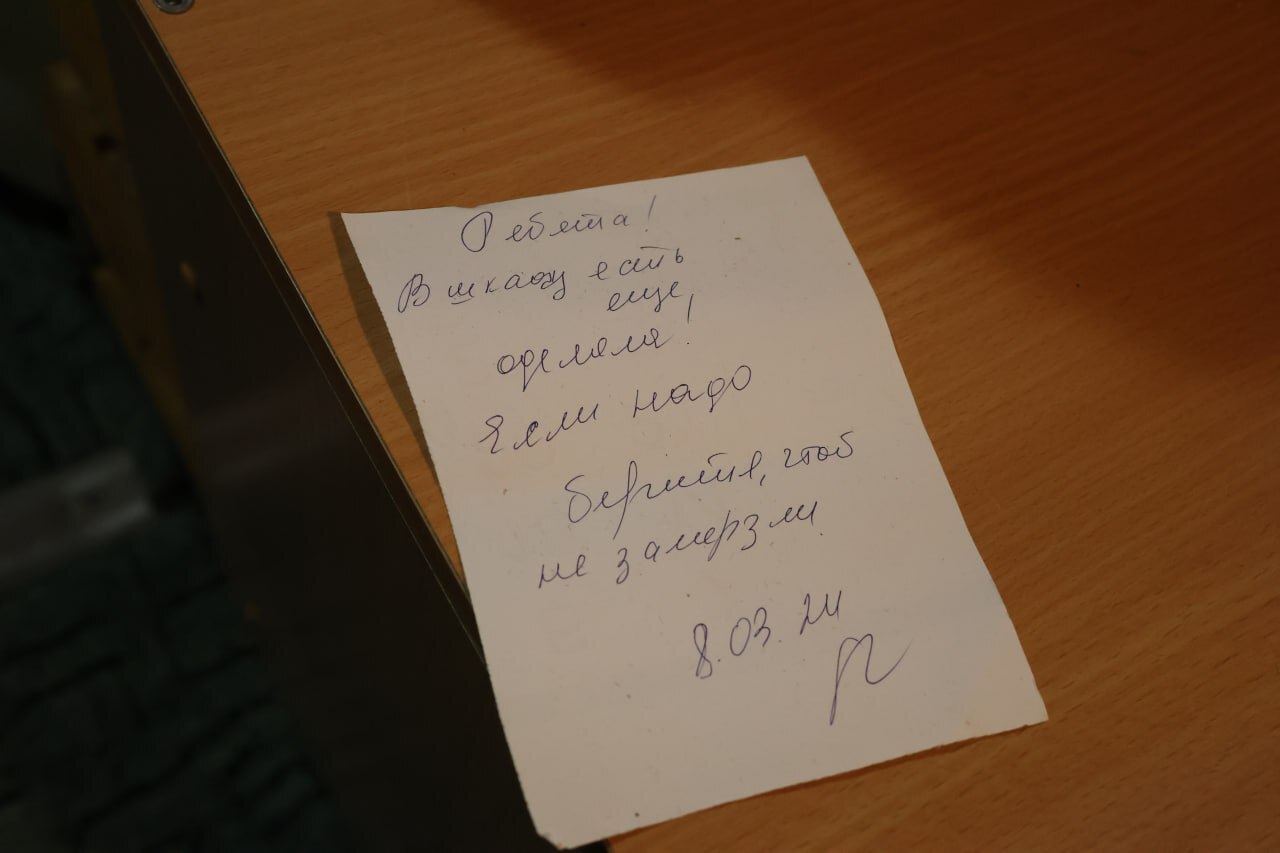 Ребята!
В шкафу есть
еще
одеяла!
Если надо
берите, чтоб
не замерзли.
8.03.24